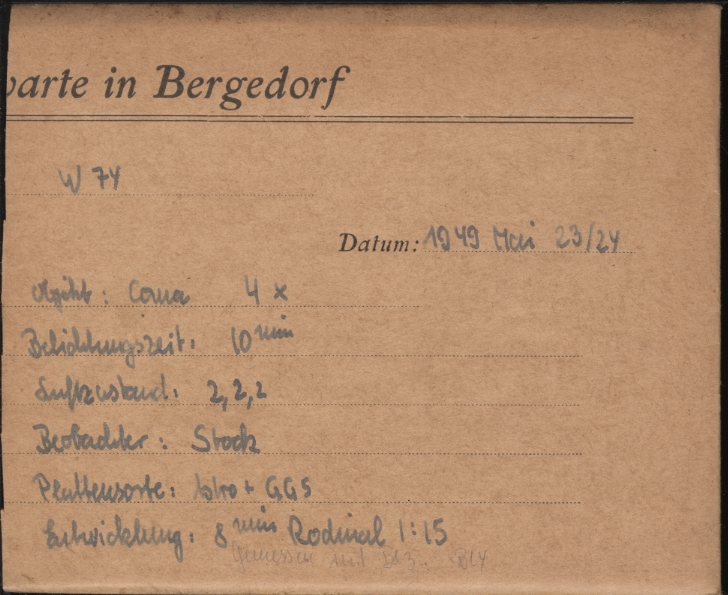 warte in Bergedorf
W 74
Datum: 1949 Mai 23/24
Objekt: Coma 4 x
Belichtungszeit: 10 min
Luftzustand: 2, 2, 2
Beobachter: Stock
Plattensorte: + GG5
Entwicklung: 8 min Rodinal 1:15
Gemessen mit